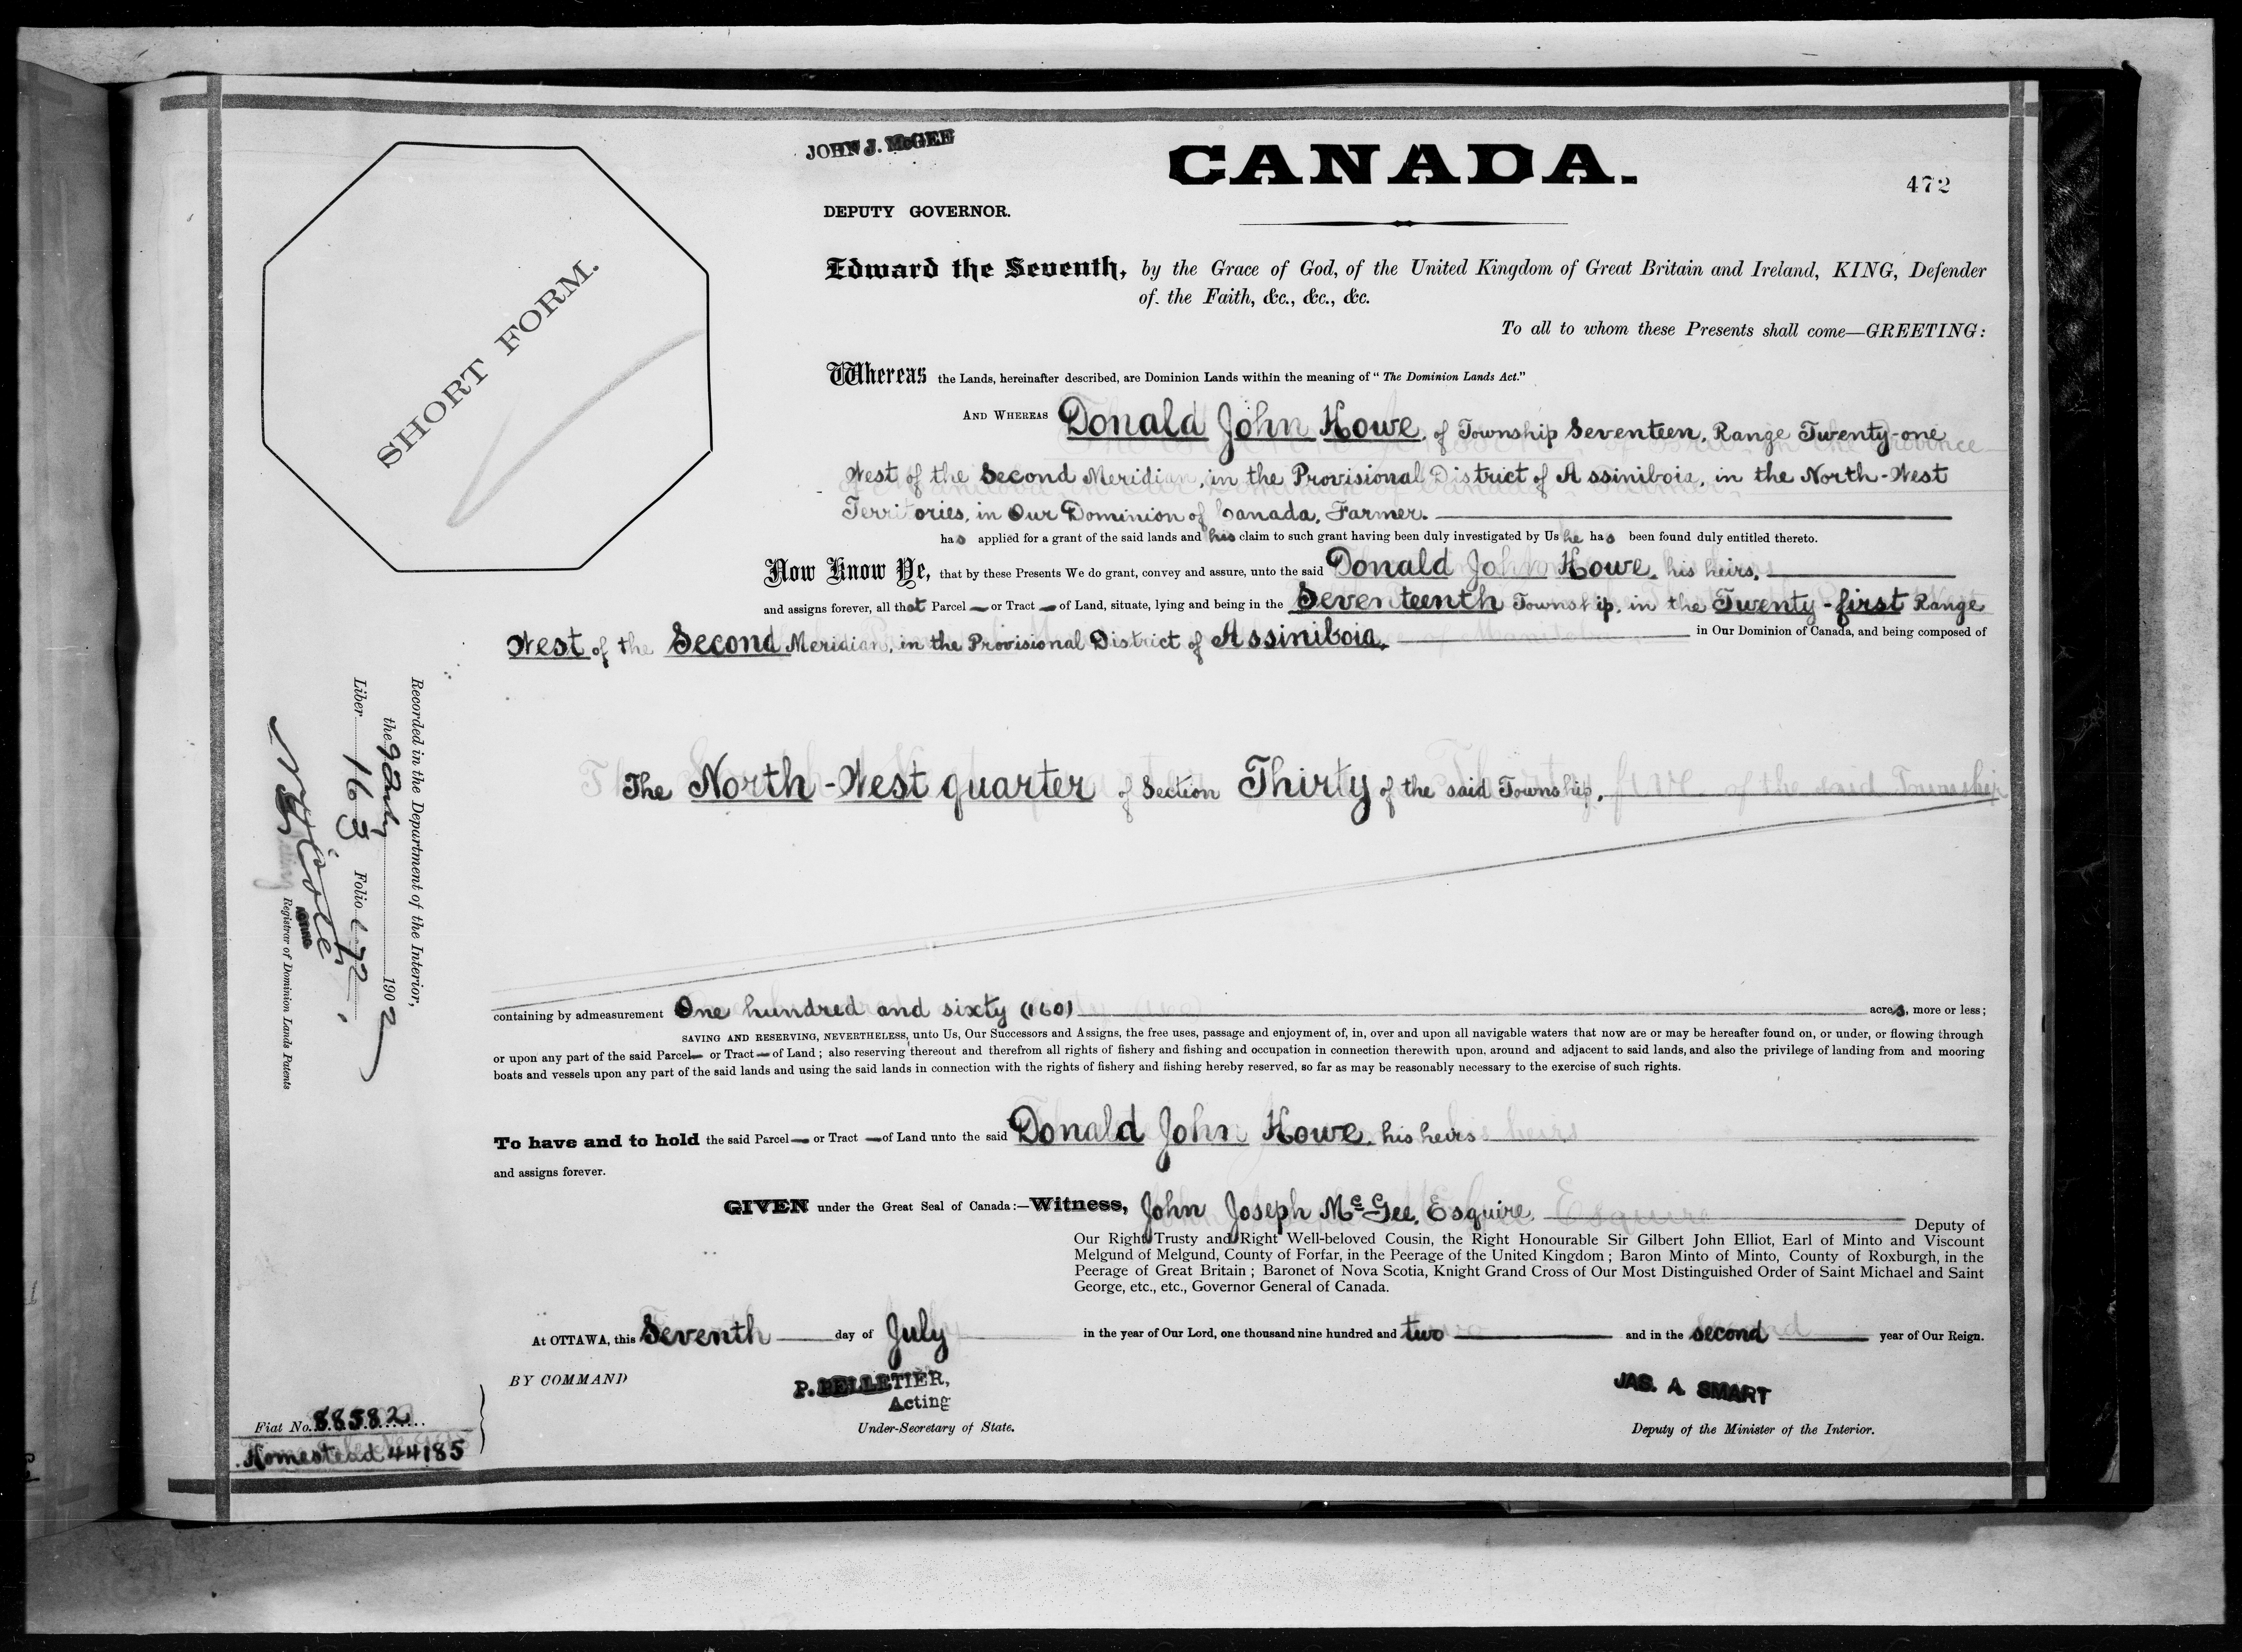 JOHN J. McGEE
CANADA.
472
DEPUTY GOVERNOR.
SHORT FORM.
Edward the Seventh, by the Grace of God, of the United Kingdom of Great Britain and Ireland, KING, Defender
of the Faith, &c., &c., &c.
To all to whom these Presents shall come—GREETING:
Whereas the Lands, hereinafter described, are Dominion Lands within the meaning of "The Dominion Lands Act."
AND WHEREAS Donald John Howe, of Township Seventeen, Range Twenty-one
West of the Second Meridian, in the Provisional District of Assiniboia, in the North-West
Territories, in Our Dominion of Canada, Farmer.
has applied for a grant of the said lands and his claim to such grant having been duly investigated by Us he has been found duly entitled thereto.
Now Know Ye, that by these Presents We do grant, convey and assure, unto the said Donald John Howe, his heirs,
and assigns forever, all that Parcel — or Tract — of Land, situate, lying and being in the Seventeenth Township, in the Twenty-first Range
West of the Second Meridian, in the Provisional District of Assiniboia, in Our Dominion of Canada, and being composed of
The North-West quarter of Section Thirty of the said Township.
containing by admeasurement One hundred and sixty (160) acres, more or less;
SAVING AND RESERVING, NEVERTHELESS, unto Us, Our Successors and Assigns, the free uses, passage and enjoyment of, in, over and upon all navigable waters that now are or may be hereafter found on, or under, or flowing through
or upon any part of the said Parcel — or Tract — of Land; also reserving thereout and therefrom all rights of fishery and fishing and occupation in connection therewith upon, around and adjacent to said lands, and also the privilege of landing from and mooring
boats and vessels upon any part of the said lands and using the said lands in connection with the rights of fishery and fishing hereby reserved, so far as may be reasonably necessary to the exercise of such rights.
To have and to hold the said Parcel — or Tract — of Land unto the said Donald John Howe, his heirs
and assigns forever.
GIVEN under the Great Seal of Canada:—Witness, John Joseph McGee, Esquire, Deputy of
Our Right Trusty and Right Well-beloved Cousin, the Right Honourable Sir Gilbert John Elliot, Earl of Minto and Viscount
Melgund of Melgund, County of Forfar, in the Peerage of the United Kingdom; Baron Minto of Minto, County of Roxburgh, in the
Peerage of Great Britain; Baronet of Nova Scotia, Knight Grand Cross of Our Most Distinguished Order of Saint Michael and Saint
George, etc., etc., Governor General of Canada.
At OTTAWA, this Seventh day of July in the year of Our Lord, one thousand nine hundred and two and in the second year of Our Reign.
BY COMMAND
P. PELLETIER,
Acting
Under-Secretary of State.
JAS. A. SMART
Deputy of the Minister of the Interior.
Fiat No. 88582
Homestead 44185
Recorded in the Department of the Interior,
the 9 July 1902
Liber 163 Folio 472
ACTING
Registrar of Dominion Lands Patents